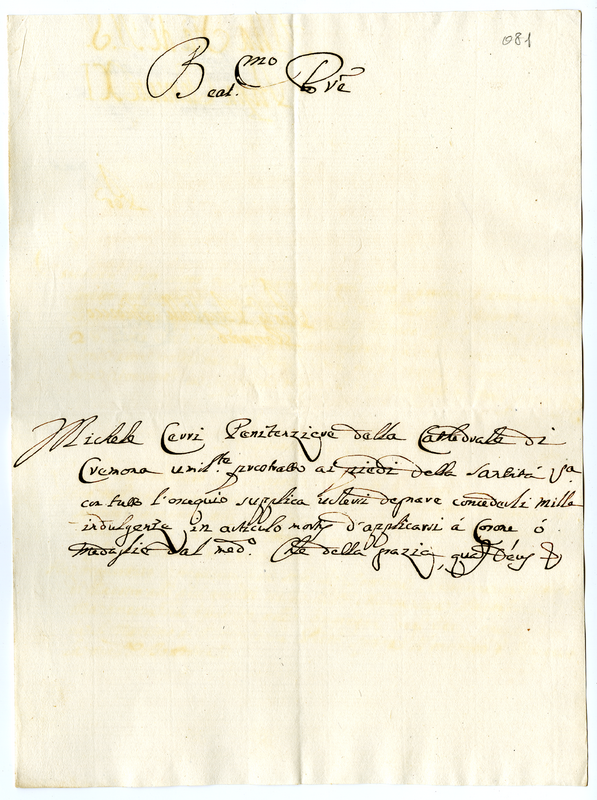 081
Beat.mo Pre
Michele Cerri Penitenziere della Cattedrale di
Cremona umil.te prostratto ai piedi della Santità Va
con tutto l'ossequio supplica volersi degnare concederli mille
indulgenze in articulo mortis d'applicarsi à Corone ó
medaglie dal med.o Che della grazia, quam Deus &